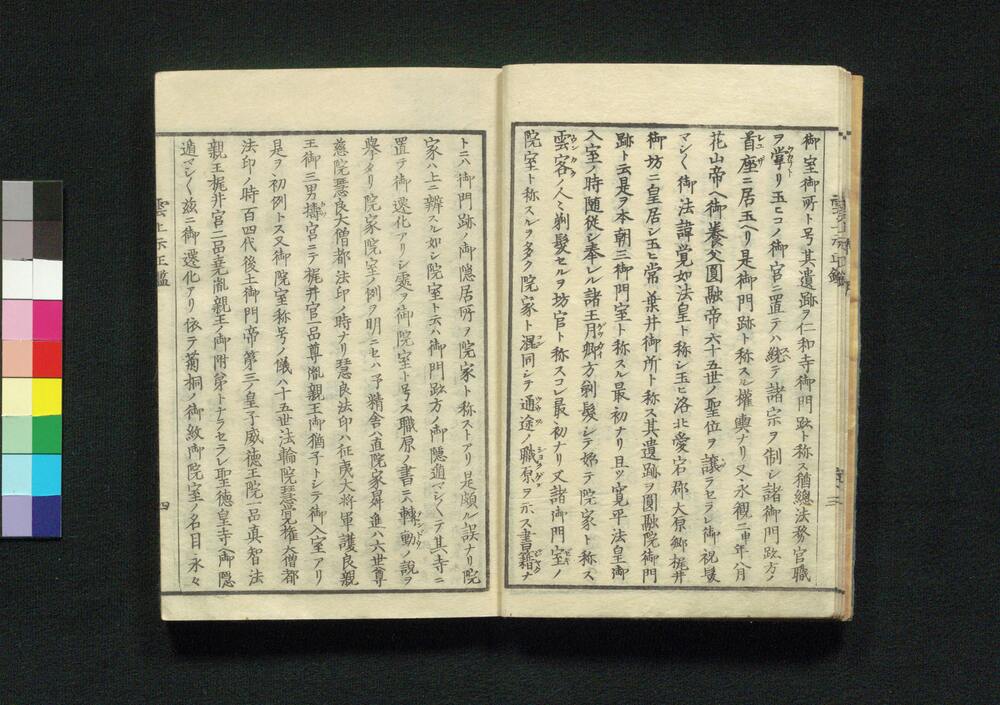 御室御所ト号其遺跡ヲ仁和寺御門跡ト称ス猶總法務官職
ヲ掌リ玉ヒコノ御官ニ置テハ統テ諸宗ヲ制シ諸御門跡方ノ
首座ニ居玉ヘリ是御門跡ト称スル權輿ナリ又永觀二申年八月
花山帝ヘ御養父圓融帝六十五世ノ聖位ヲ讓ラセラレ御祝髪
マシ〱御法諱覚如法皇ト称シ玉ヒ洛北愛宕郡大原郷梶井
御坊ニ皇居シ玉ヒ常ニ葉井御所ト称ス其遺跡ヲ圓融院御門
跡ト云是ヲ本朝三御門室ト称スル最初ナリ且ツ寛平法皇御
入室ノ時随従シ奉レル諸王月卿方剃髪シテ始テ院家ト称ス
雲客ノ人〻剃髪セルヲ坊官ト称スコレ最初ナリ又諸御門室ノ
院室ト称スルヲ多ク院家ト混同シテ通途ノ職原ヲ示ス書籍ナ
トニハ御門跡ノ御隠居所ヲ院家ト称ストアリ是頗ル誤ナリ院
家ハ上ニ辨スル如シ院室ト云ハ御門跡方ノ御隠遁マシ〱テ其寺ニ
置テ御遷化アリシ霊ヲ御院室ト号ス職原ノ書ニハ轉動ノ説ヲ
擧タリ院家院室ノ例ヲ明ニセハ予精舎ハ直院家昇進ハ六世尊
慈院慧良大僧都法印ノ時ナリ慧良法印ハ征夷大将軍護良親
王御三男擣宮ニテ梶井宮一品尊胤親王御猶子トシテ御入室アリ
是ヲ初例トス又御院室称号ノ儀ハ十五世法輪院慧完權大僧都
法印ノ時百四代後土御門帝第三ノ皇子威徳王院一品真智法
親王梶井宮二品堯胤親王ノ御附弟トナラセラレ聖徳皇寺ヘ御隠
遁マシ〱玆ニ御遷化アリ依テ菊桐ノ御紋御院室ノ名目永々
雲上示正鑑
四